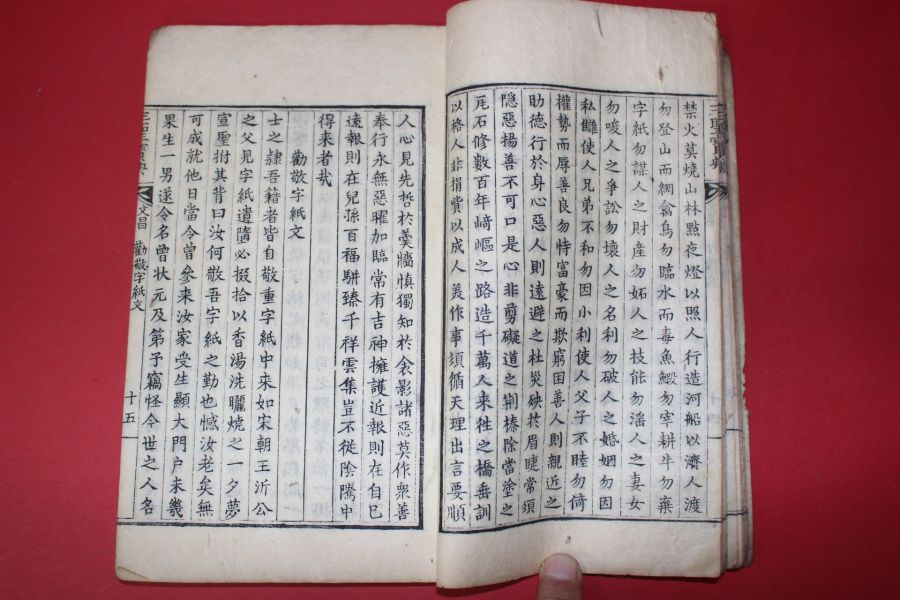 三聖寶典
禁火莫燒山林點夜燈以照人行造河船以濟人渡
勿登山而網禽鳥勿臨水而毒魚鰕勿宰耕牛勿棄
字紙勿謀人之財産勿妬人之技能勿滛人之妻女
勿唆人之爭訟勿壞人之名利勿破人之婚姻勿因
私讎使人兄弟不和勿因小利使人父子不睦勿倚
權勢而辱善良勿恃富豪而欺窮困善人則親近之
助德行於身心惡人則遠避之杜災殃於眉睫常須
隱惡揚善不可口是心非剪礙道之荆榛除當塗之
瓦石修數百年崎嶇之路造千萬人来徃之橋垂訓
以格人非捐貲以成人美作事須循天理出言要順
人心見先哲於羹牆慎獨知於衾影諸惡莫作衆善
奉行永無惡曜加臨常有吉神擁護近報則在自己
遠報則在兒孫百福駢臻千祥雲集豈不從陰騭中
得来者哉
勸敬字紙文
士之隷吾籍者皆自敬重字紙中来如宋朝王沂公
之父見字紙遺墮必掇拾以香湯洗曬燒之一夕夢
宣聖拊其背曰汝何敬吾字紙之勤也憾汝老矣無
可成就他日當令曾參来汝家受生顯大門户未幾
果生一男遂令名曾狀元及第予竊怪今世之人名
三聖寶典 文昌 勸敬字紙文 十五